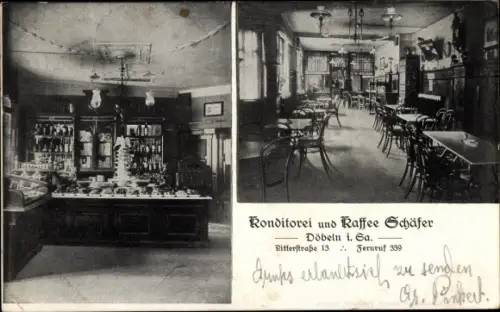 Konditorei und Kaffee Schäfer
Döbeln i. Sa.
Ritterstraße 13 ∴ Fernruf 339
Gruß erlaubt sich zu senden